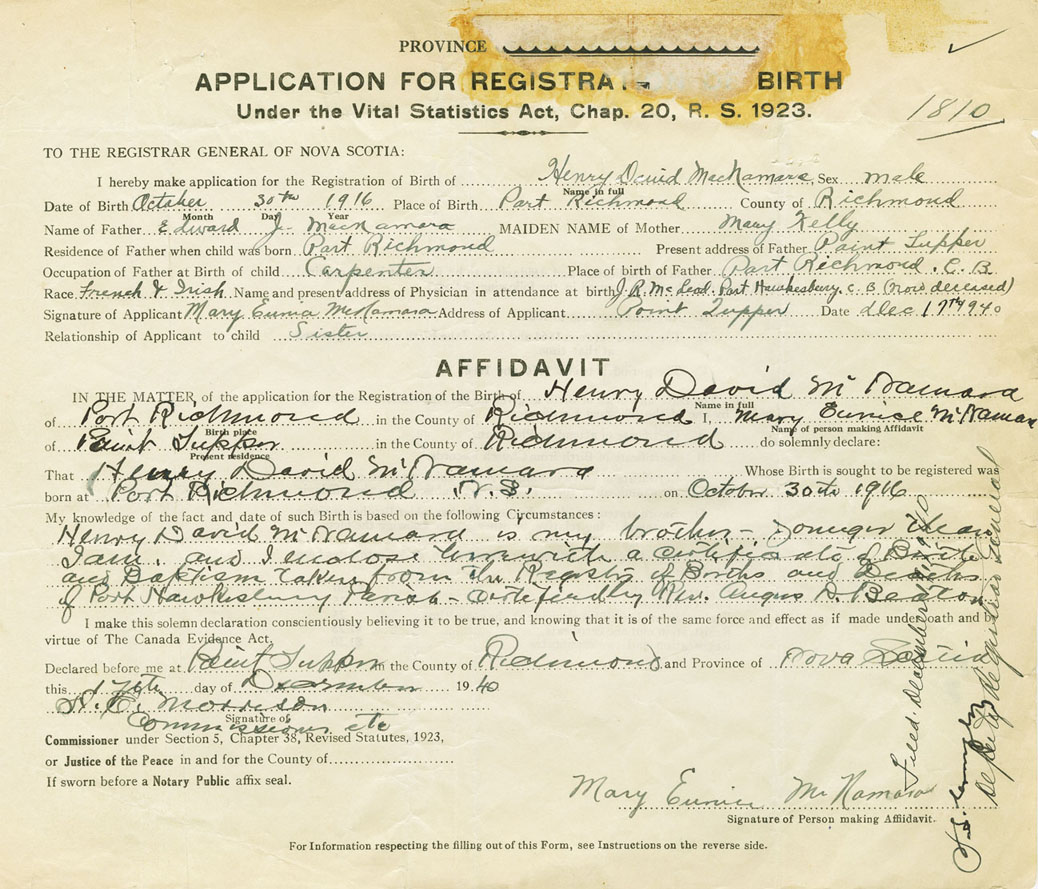 PROVINCE
APPLICATION FOR REGISTRA BIRTH
Under the Vital Statistics Act, Chap. 20, R. S. 1923.
1810
TO THE REGISTRAR GENERAL OF NOVA SCOTIA:
I hereby make application for the Registration of Birth of Henry David MacNamara Sex male
Name in full
Date of Birth October 30th 1916 Place of Birth Port Richmond County of Richmond
Month Day Year
Name of Father Edward J. MacNamara MAIDEN NAME of Mother Mary Kelly
Residence of Father when child was born Port Richmond Present address of Father Point Tupper
Occupation of Father at Birth of child Carpenter Place of birth of Father Port Richmond. C. B
Race French & Irish Name and present address of Physician in attendance at birth J. R. McLeod. Port Hawkesbury. C. B (now deceased)
Signature of Applicant Mary Eunice McNamara Address of Applicant Point Tupper Date Dec 17th 1940
Relationship of Applicant to child Sister
AFFIDAVIT
IN THE MATTER of the application for the Registration of the Birth of Henry David McNamara
Name in full
of Port Richmond in the County of Richmond I, Mary Eunice McNamara
Birth place Name of person making Affidavit
of Point Tupper in the County of Richmond do solemnly declare:
Present residence
That Henry David McNamara Whose Birth is sought to be registered was
born at Port Richmond N.S. on October 30th 1916
My knowledge of the fact and date of such Birth is based on the following Circumstances:
Henry David McNamara is my brother - younger than
I am. and I enclose herewith a certificate of Birth
and Baptism taken from the Registry of Births and Deaths
of Port Hawkesbury Parish - Certified by Rev. Angus D. Beaton
I make this solemn declaration conscientiously believing it to be true, and knowing that it is of the same force and effect as if made under oath and by
virtue of The Canada Evidence Act,
Declared before me at Point Tupper in the County of Richmond and Province of Nova Scotia
this 17th day of December 1940
Morrison
Signature of
Commissioner etc
Commissioner under Section 5, Chapter 38, Revised Statutes, 1923,
or Justice of the Peace in and for the County of
If sworn before a Notary Public affix seal.
Mary Eunice McNamara
Signature of Person making Affidavit.
For Information respecting the filling out of this Form, see Instructions on the reverse side.
Filed December
Deputy Registrar General